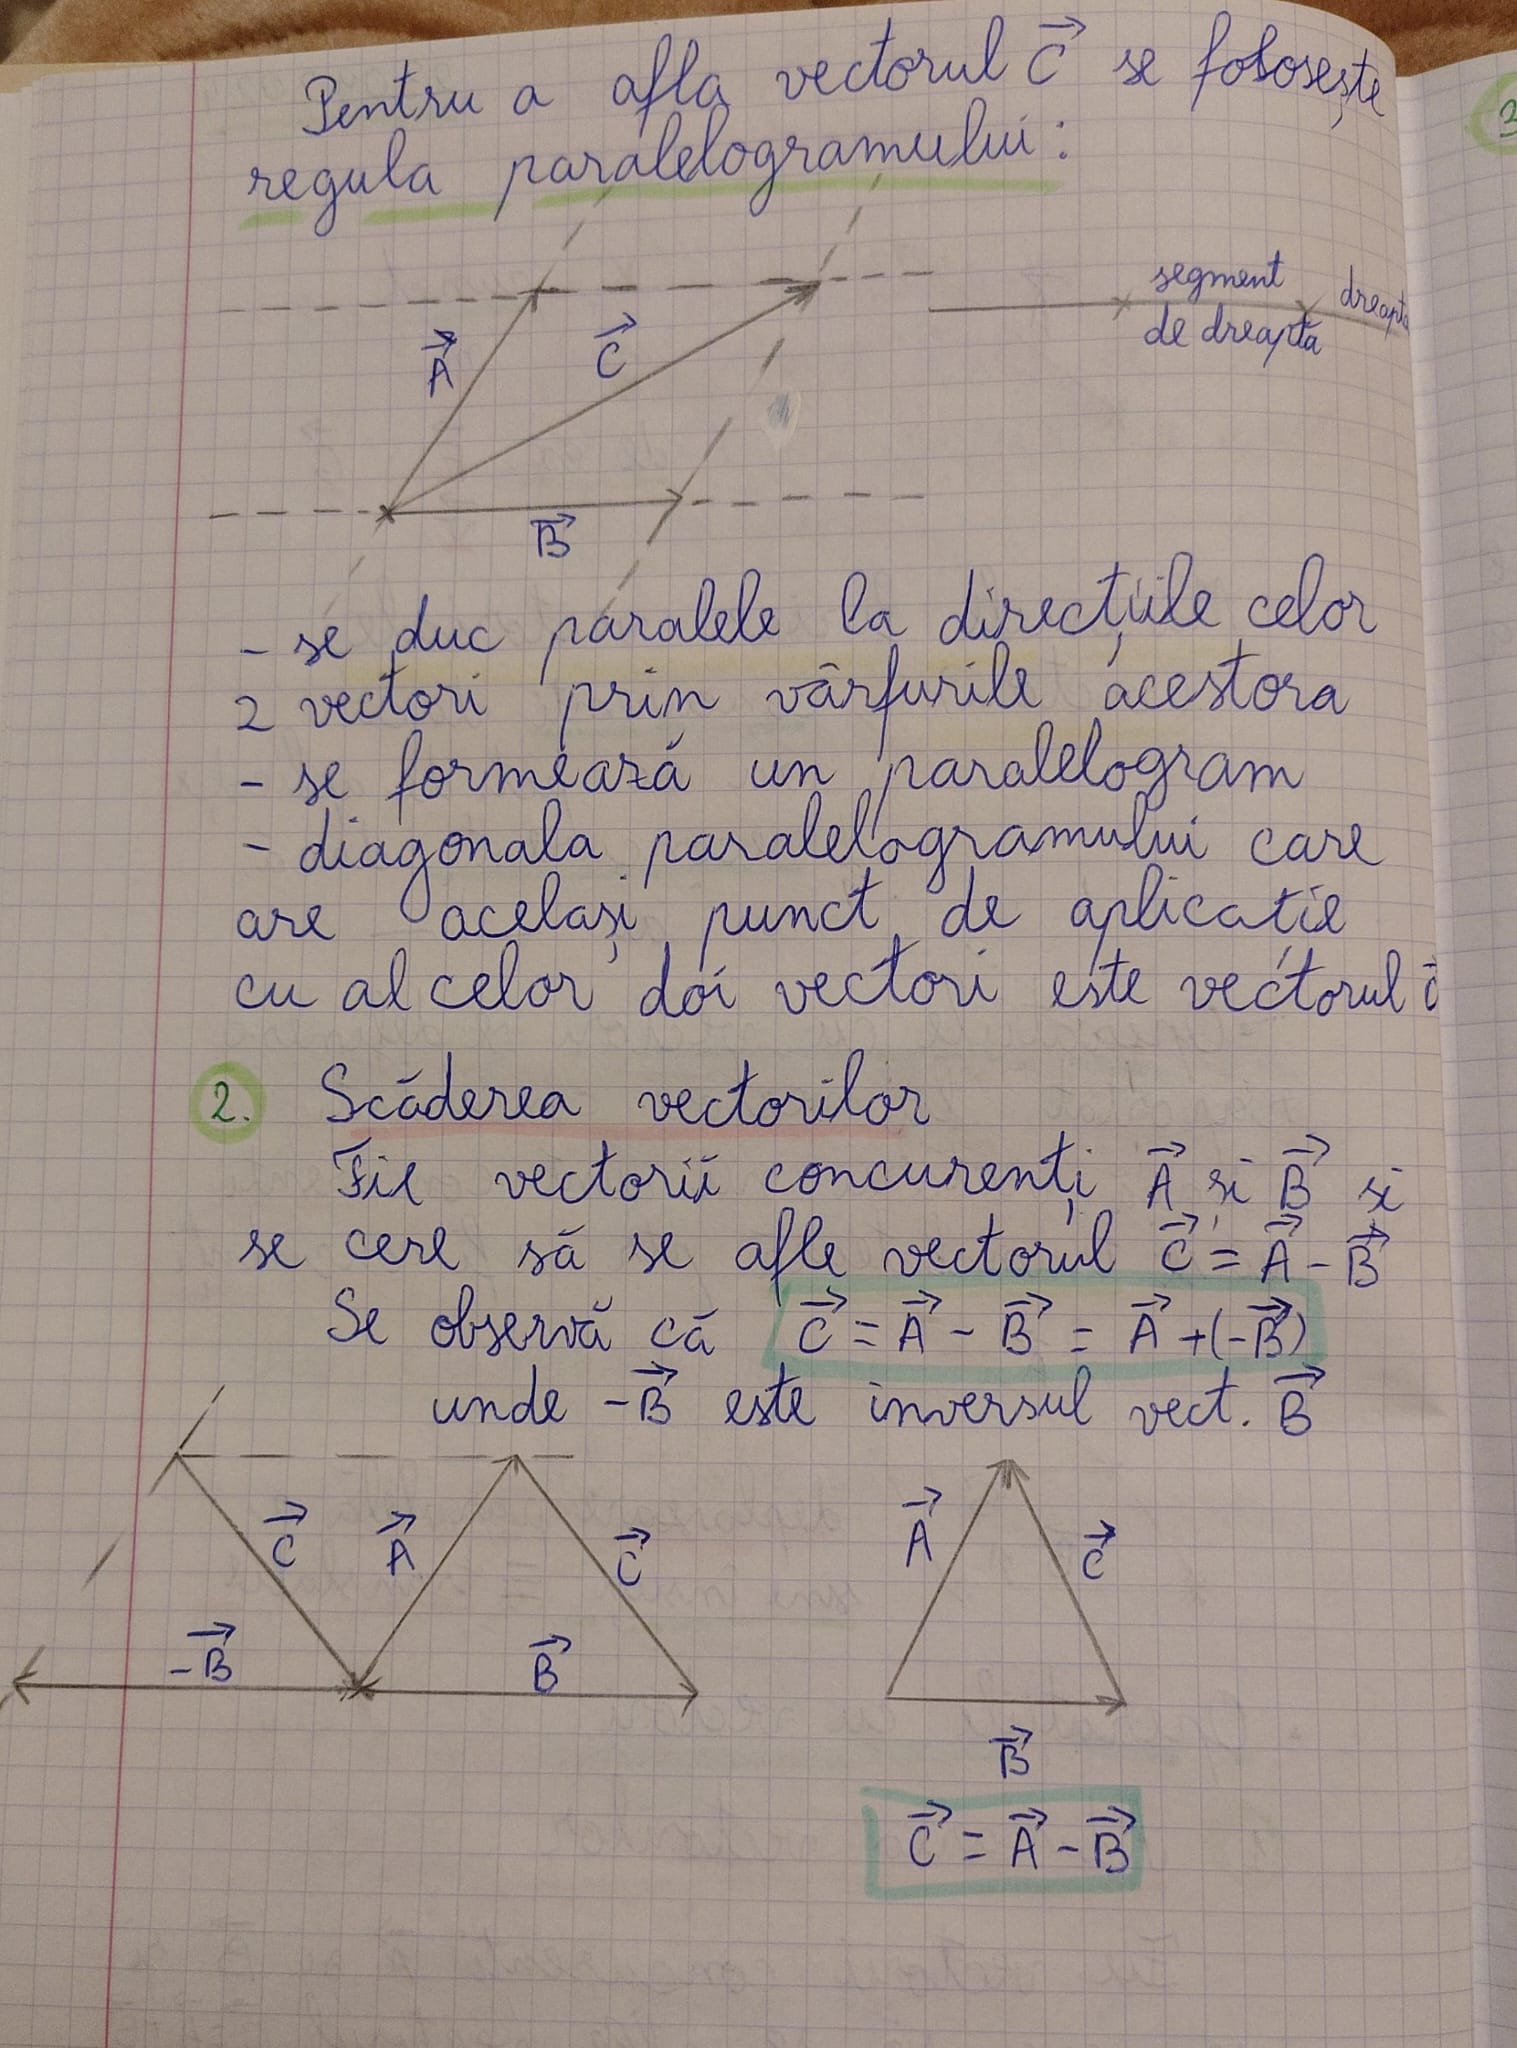 Pentru a afla vectorul C⃗ se folosește
regula paralelogramului:
3
segment
de dreaptă
dreapta
A⃗
C⃗
B⃗
- se duc paralele la direcțiile celor
2 vectori prin vârfurile acestora
- se formează un paralelogram
- diagonala paralelogramului care
are același punct de aplicație
cu al celor doi vectori este vectorul C⃗
2. Scăderea vectorilor
Fie vectorii concurenți A⃗ și B⃗ și
se cere să se afle vectorul C⃗ = A⃗ - B⃗
Se observă că C⃗ = A⃗ - B⃗ = A⃗ + (-B⃗)
unde -B⃗ este inversul vect. B⃗
C⃗
A⃗
C⃗
-B⃗
B⃗
A⃗
C⃗
B⃗
C⃗ = A⃗ - B⃗